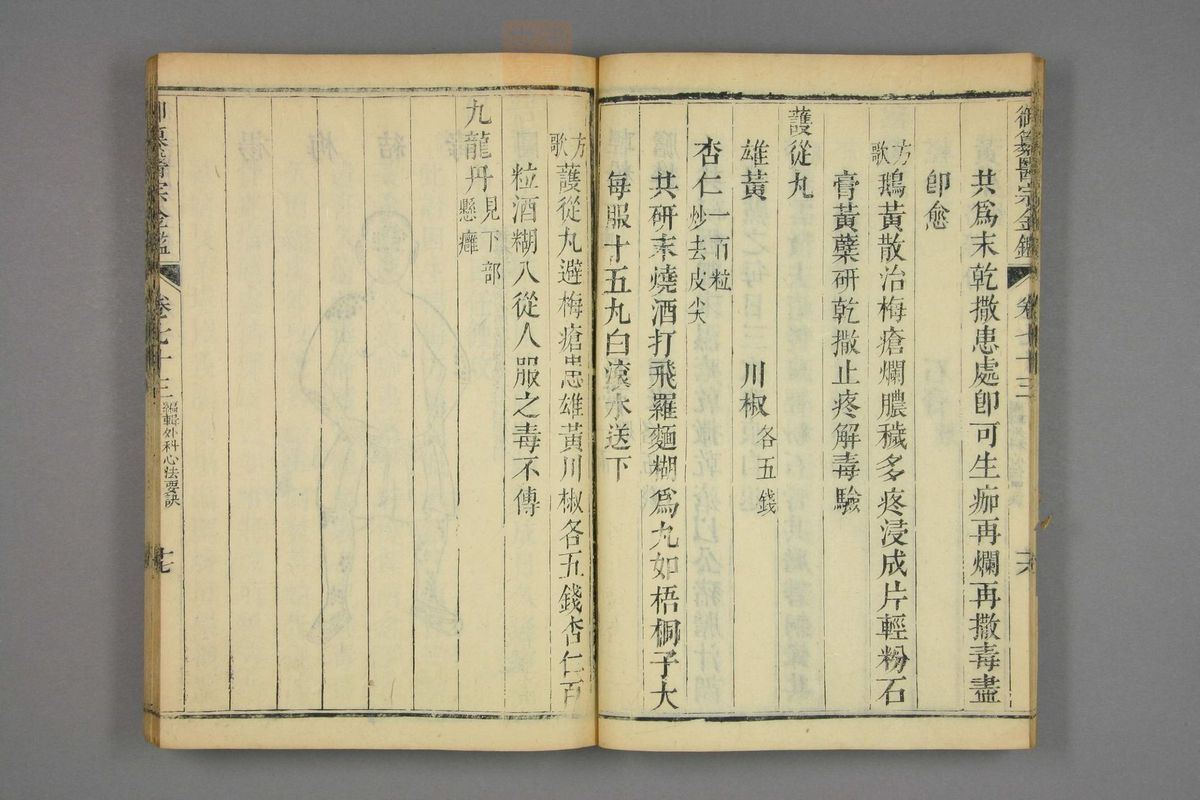 御纂醫宗金鑑 卷七十三 六
共爲末乾撒患處卽可生痂再爛再撒毒盡
卽愈
方歌 鵝黃散治梅瘡爛膿穢多疼浸成片輕粉石
膏黃蘗研乾撒止疼解毒驗
護從丸
雄黃 川椒各五錢
杏仁一百粒炒去皮尖
共研末燒酒打飛羅麵糊爲丸如梧桐子大
每服十五丸白滾水送下
方歌 護從丸避梅瘡患雄黃川椒各五錢杏仁百
粒酒糊入從人服之毒不傳
九龍丹見下部懸癰
御纂醫宗金鑑 卷七十三 編輯外科心法要訣 七